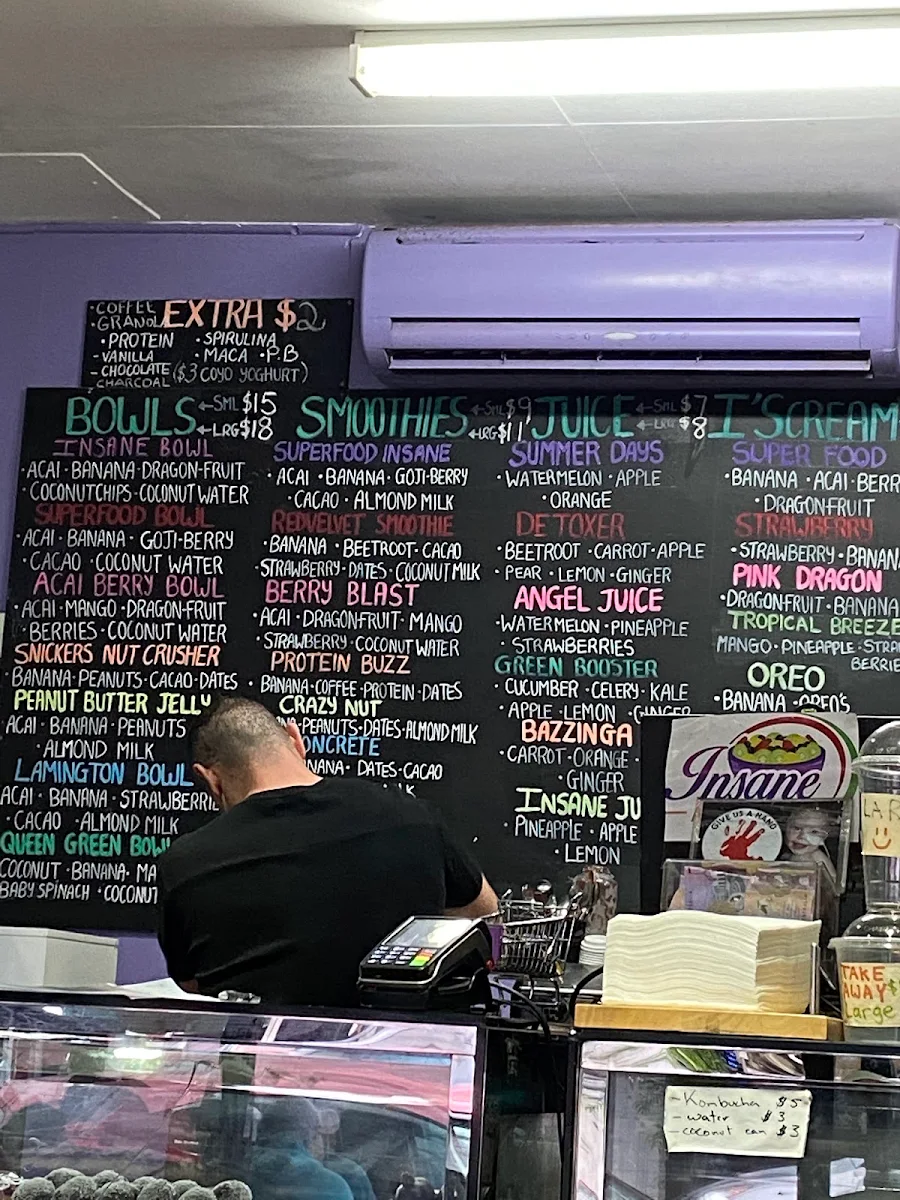 · COFFEE
· GRANOLA
EXTRA $2
· PROTEIN · SPIRULINA
- VANILLA · MACA · P.B
- CHOCOLATE ($3 COYO YOGHURT)
CHARCOAL
BOWLS ←SML $15
←LRG $18
INSANE BOWL
· ACAI · BANANA · DRAGON-FRUIT
· COCONUTCHIPS · COCONUT WATER
SUPERFOOD BOWL
· ACAI · BANANA · GOTI-BERRY
· CACAO · COCONUT WATER
ACAI BERRY BOWL
· ACAI · MANGO · DRAGON-FRUIT
· BERRIES · COCONUT WATER
SNICKERS NUT CRUSHER
· BANANA · PEANUTS · CACAO · DATES
PEANUT BUTTER JELLY
ACAI · BANANA · PEANUTS
· ALMOND MILK
LAMINGTON BOWL
ACAI · BANANA · STRAWBERRI
· CACAO · ALMOND MILK
QUEEN GREEN BOWL
COCONUT · BANANA · MA
BABY SPINACH · COCONUT
SMOOTHIES ←SML $9
←LRG $11
SUPERFOOD INSANE
· ACAI · BANANA · GOJI-BERRY
· CACAO · ALMOND MILK
REDVELVET SMOOTHIE
· BANANA · BEETROOT · CACAO
· STRAWBERRY · DATES · COCONUT MILK
BERRY BLAST
· ACAI · DRAGONFRUIT · MANGO
· STRAWBERRY · COCONUT WATER
PROTEIN BUZZ
· BANANA · COFFEE · PROTEIN · DATES
CRAZY NUT
NA · PEANUTS · DATES · ALMOND MILK
ONCRETE
NANA · DATES · CACAO
JUICE ←SML $7
←LRG $8
SUMMER DAYS
· WATERMELON · APPLE
· ORANGE
DETOXER
· BEETROOT · CARROT · APPLE
· PEAR · LEMON · GINGER
ANGEL JUICE
· WATERMELON · PINEAPPLE
· STRAWBERRIES
GREEN BOOSTER
· CUCUMBER · CELERY · KALE
· APPLE · LEMON · GINGER
BAZZINGA
· CARROT · ORANGE ·
· GINGER
INSANE JU
PINEAPPLE · APPLE
· LEMON
I'SCREAM
SUPER FOOD
· BANANA · ACAI · BERR
· DRAGONFRUIT
STRAWBERRY
· STRAWBERRY · BANAN
PINK DRAGON
· DRAGONFRUIT · BANANA
TROPICAL BREEZE
MANGO · PINEAPPLE · STRAW
BERRIE
OREO
· BANANA · OREO'S
Insane
GIVE US A HAND
LAR
TAKE
AWAY $
Large
- Kombucha $5
- water $3
- coconut can $3